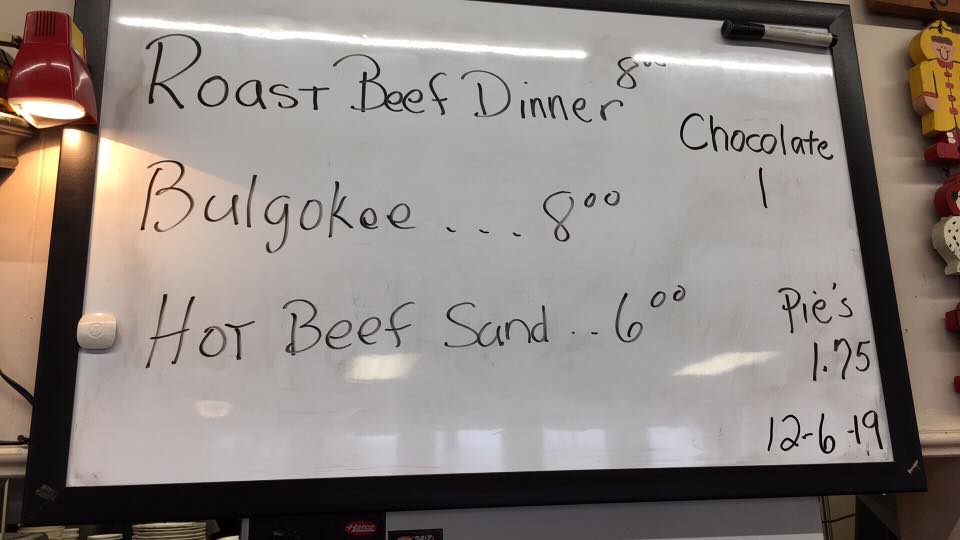 Roast Beef Dinner 8⁰⁰
Bulgokee ... 8⁰⁰
Hot Beef Sand .. 6⁰⁰
Chocolate
1
Pie's
1.75
12-6-19
Hatco
24/7